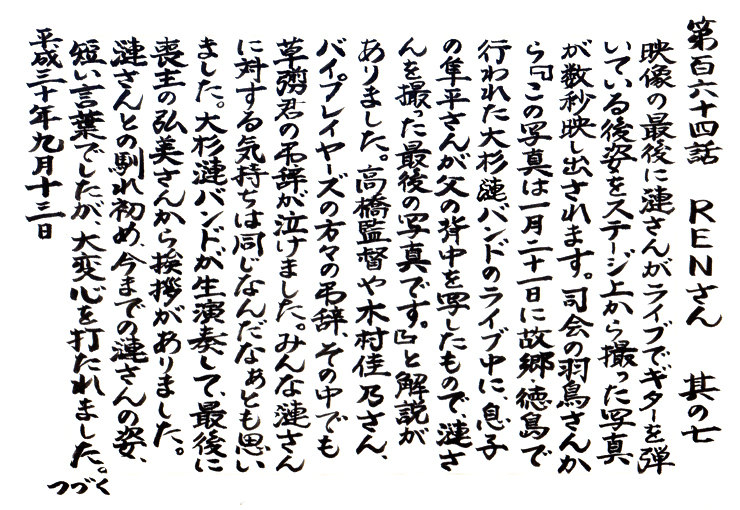 第百六十四話　RENさん　其の七
映像の最後に漣さんがライブでギターを弾
いている後姿をステージ上から撮った写真
が数秒映し出されます。司会の羽鳥さんか
ら「この写真は一月二十一日に故郷、徳島で
行われた大杉漣バンドのライブ中に、息子
の隼平さんが父の背中を写したもので、漣さ
んを撮った最後の写真です。」と解説が
ありました。高橋監督や木村佳乃さん、
バイプレイヤーズの方々の弔辞、その中でも
草彅君の弔辞が泣けました。みんな漣さん
に対する気持ちは同じなんだなぁとも思い
ました。大杉漣バンドが生演奏して、最後に
喪主の弘美さんから挨拶がありました。
漣さんとの馴れ初め、今までの漣さんの姿、
短い言葉でしたが、大変心を打たれました。
つづく
平成三十年九月十三日